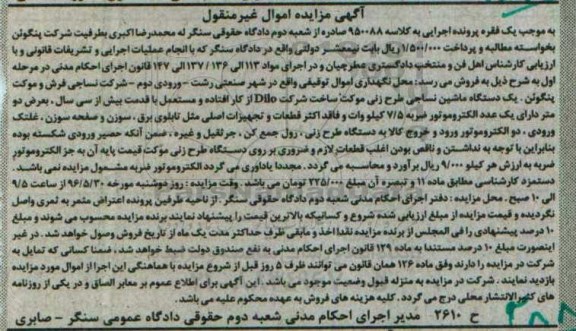 آگهی مزایده اموال غیرمنقول
به موجب یک فقره پرونده اجرایی به کلاسه ۹۵۰۰۸۸ صادره از شعبه دوم دادگاه حقوقی سنگر له محمدرضا اکبری بطرفیت شرکت پنگوئن
بخواسته مطالبه و پرداخت ۱/۵۰۰/۰۰۰ ریال بابت نیمعشر دولتی واقع در دادگاه سنگر که با انجام عملیات اجرایی و تشریفات قانونی و با
ارزیابی کارشناس اهل فن و منتخب دادگستری عطرچیان و در اجرای مواد ۱۱۳ الی ۱۳۶ / ۱۳۷ الی ۱۴۷ قانون اجرای احکام مدنی در مرحله
اول به شرح ذیل به فروش می رسد: محل نگهداری اموال توقیفی واقع در شهر صنعتی رشت - ورودی دوم - شرکت نساجی فرش و موکت
پنگوئن . یک دستگاه ماشین نساجی طرح زنی موکت ساخت شرکت Dilo از کار افتاده و مستعمل با قدمت بیش از سی سال . بعرض دو
متر دارای یک عدد الکتروموتور ضربه ۷/۵ کیلو وات و فاقد اکثر قطعات و تجهیزات اصلی مثل تابلوی برق . سوزن و صفحه سوزن . غلتک
ورودی . دو الکتروموتور ورود و خروج کالا به دستگاه طرح زنی . رول جمع کن . جرثقیل و غیره . ضمن آنکه حصیر ورودی شکسته بوده
بنابراین با توجه به نداشتن و ناقص بودن اغلب قطعات لازم و ضروری بر روی دستگاه طرح زنی موکت قیمت پایه آن به جز الکتروموتور
ضربه به ارزش هر کیلو ۹/۰۰۰ ریال برآورد و محاسبه می گردد . مجددا یادآوری می گردد الکتروموتور ضربه مشمول مزایده نمی باشد.
دستمزد کارشناسی مطابق ماده ۱۱ و تبصره آن مبلغ ۲۲۵/۰۰۰ تومان می باشد. وقت مزایده : روز دوشنبه مورخه ۹۶/۵/۳۰ از ساعت ۹/۵
الی ۱۰ صبح . محل مزایده : دفتر اجرای احکام مدنی شعبه دوم دادگاه حقوقی سنگر . از ناحیه طرفین پرونده اعتراض مثمر به ثمری واصل
نگردیده و قیمت مزایده از مبلغ ارزیابی شده شروع و کسانیکه بالاترین قیمت را پیشنهاد نمایند برنده مزایده محسوب می شوند و مبلغ
۱۰ درصد پیشنهادی را فی المجلس از برنده مزایده نقدا اخذ و مابقی ظرف حداکثر مدت یک ماه از تاریخ فروش وصول خواهد شد . در غیر
اینصورت مبلغ ۱۰ درصد مستندا به ماده ۱۲۹ قانون اجرای احکام مدنی به نفع صندوق دولت ضبط خواهد شد . ضمنا کسانی که تمایل به
شرکت در مزایده را دارند وفق ماده ۱۲۶ همان قانون می توانند ظرف ۵ روز قبل از شروع مزایده با هماهنگی این اجرا از اموال مورد مزایده
بازدید نمایند . شرکت در مزایده به منزله قبول وضعیت موجود می باشد . این آگهی برای اطلاع عموم بر معابر الصاق و در یکی از روزنامه
های کثیرالانتشار محلی درج می گردد. کلیه هزینه های فروش به عهده محکوم علیه می باشد.
ح ۲۶۱۰ مدیر اجرای احکام مدنی شعبه دوم حقوقی دادگاه عمومی سنگر - صابری